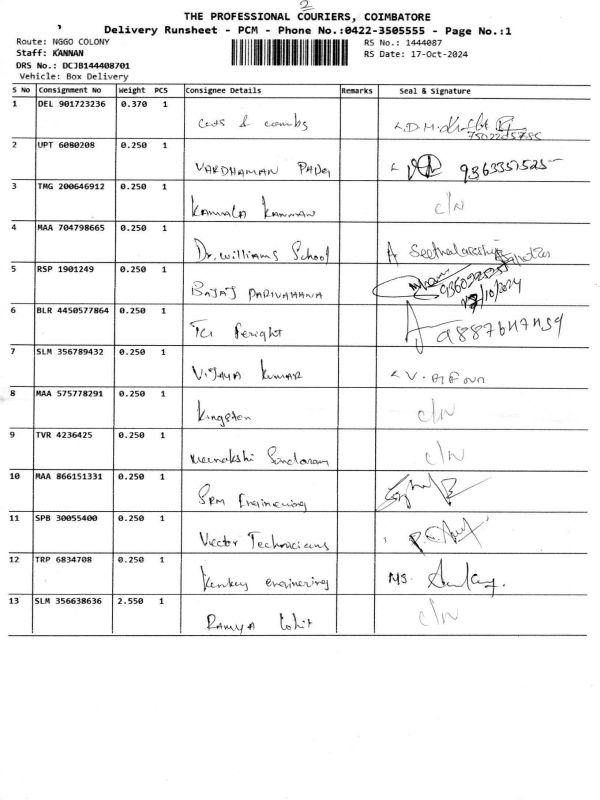 2
THE PROFESSIONAL COURIERS, COIMBATORE
Delivery Runsheet - PCM - Phone No.:0422-3505555 - Page No.:1
Route: NGGO COLONY RS No.: 1444087
Staff: KANNAN RS Date: 17-Oct-2024
DRS No.: DCJB144408701
Vehicle: Box Delivery
S No Consignment No Weight PCS Consignee Details Remarks Seal & Signature
1 DEL 901723236 0.370 1
Cuts & combs
2 UPT 6080208 0.250 1
VARDHAMAN 9363351525
3 TMG 200646912 0.250 1
Kamala Kannan C/N
4 MAA 704798665 0.250 1
Dr. Williams School
5 RSP 1901249 0.250 1
BAJAJ PARIVAHANA 17/10/2024
6 BLR 4450577864 0.250 1
TCI Freight
7 SLM 356789432 0.250 1
Vijaya Kumar
8 MAA 575778291 0.250 1
Kingston C/N
9 TVR 4236425 0.250 1
Meenakshi Sundaram C/N
10 MAA 866151331 0.250 1
SRM Engineering
11 SPB 30055400 0.250 1
Vector Technicians
12 TRP 6834708 0.250 1
engineering MS.
13 SLM 356638636 2.550 1
RAMYA C/N